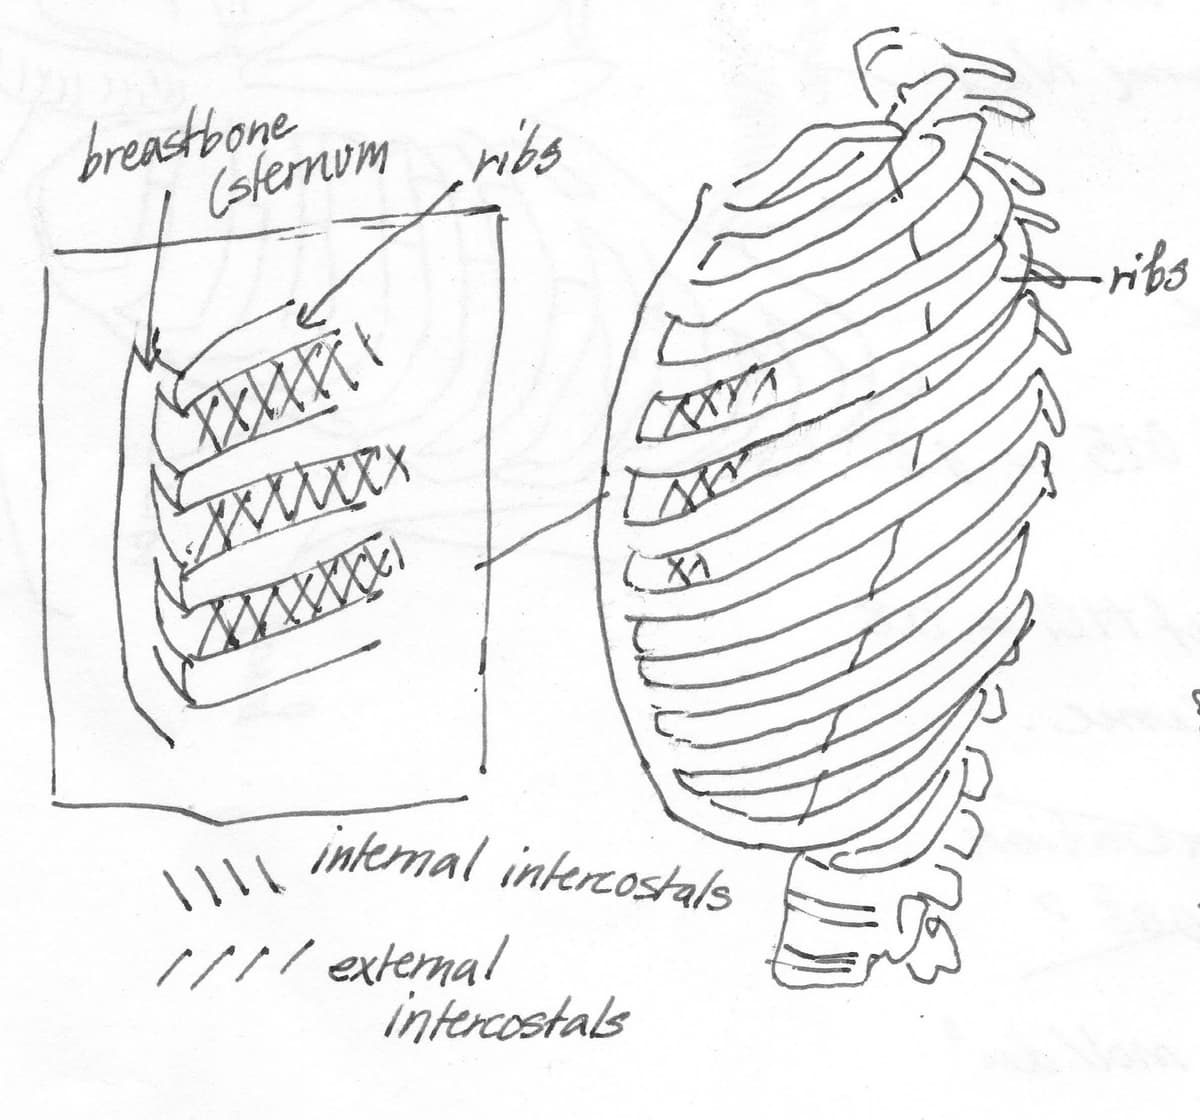 breastbone
(sternum
ribs
ribs
internal intercostals
external
intercostals